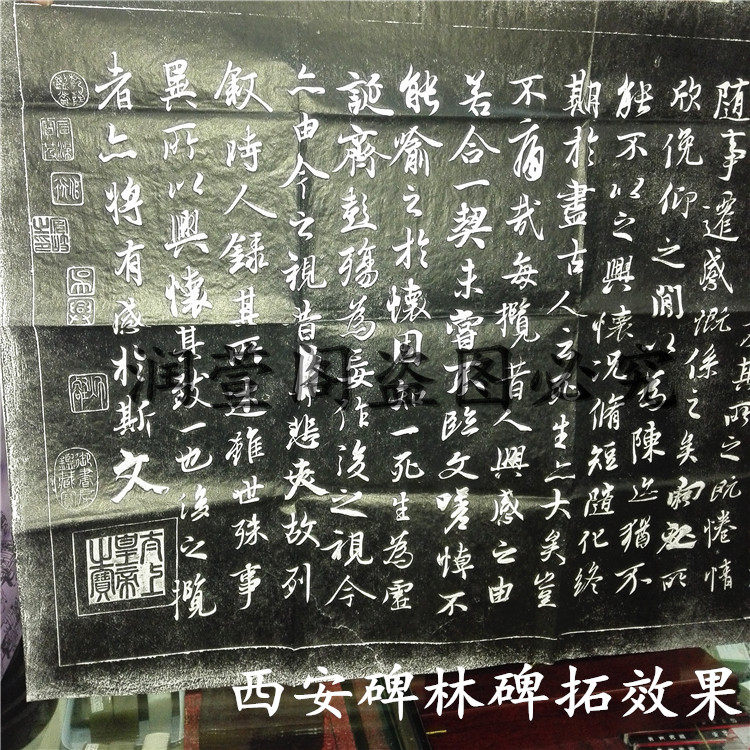 其所之既惓情
隨事遷感慨係之矣向之所
欣俛仰之間以為陳迹猶不
能不以之興懷況脩短隨化終
期於盡古人云死生亦大矣豈
不痛哉每攬昔人興感之由
若合一契未嘗不臨文嗟悼不
能喻之於懷固知一死生為虛
誕齊彭殤為妄作後之視今
亦由今之視昔悲夫故列
叙時人錄其所述雖世殊事
異所以興懷其致一也後之攬
者亦將有感於斯文
太上皇帝之寶
润萱阁盗图必究
西安碑林碑拓效果